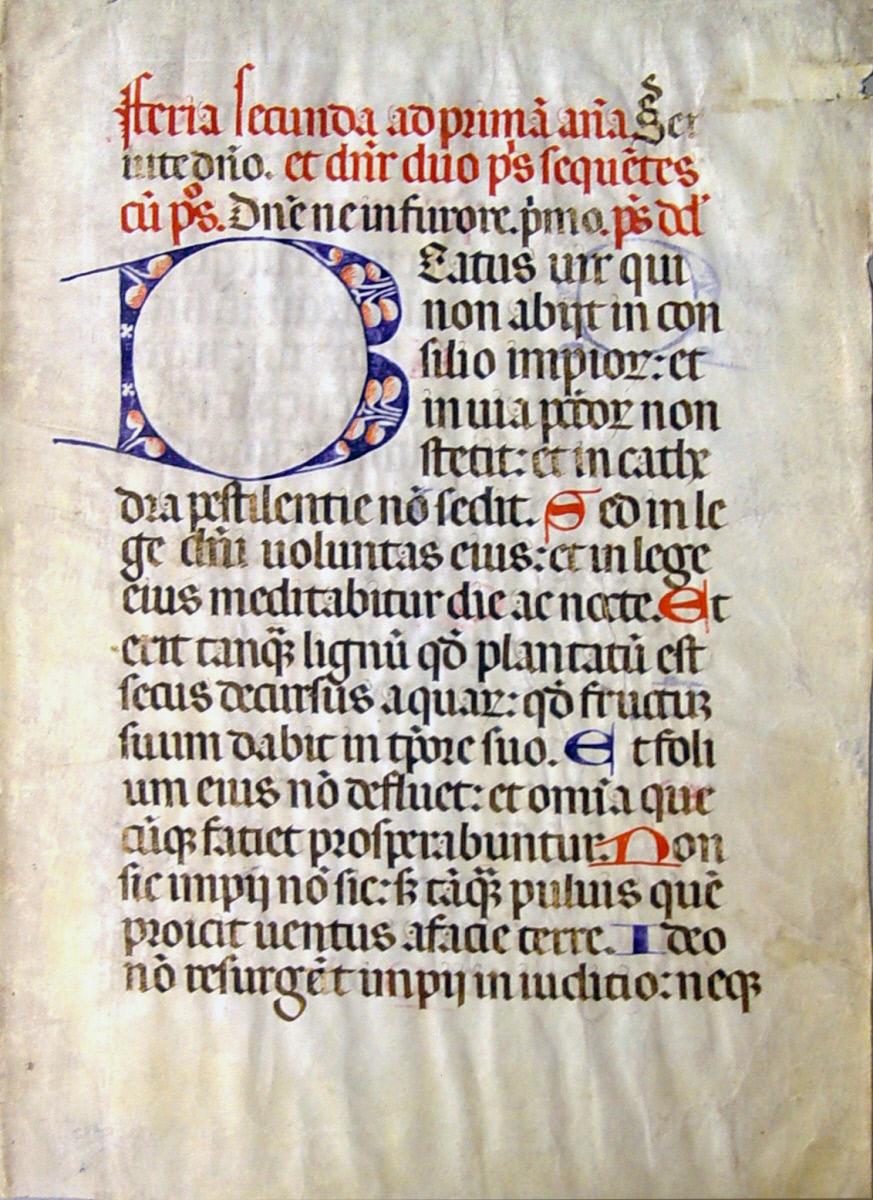 Feria secunda ad primā añaSer
uite dño. et dñr duo ps sequētes
cū ps. Dn̄e ne in furore. pmo. ps dd
Beatus uir qui
non abijt in con
silio impioꝝ: et
in uia pctoꝝ non
stetit: et in cathe
dra pestilentie nō sedit. Sed in le
ge dñi uoluntas eius: et in lege
eius meditabitur die ac nocte. Et
erit tanqꝫ lignū qđ plantatū est
secus decursus aquaꝝ: qđ fructuꝫ
suum dabit in tp̄ore suo. Et foli
um eius nō defluet: et omīa que
cūqꝫ faciet prosperabuntur. Non
sic impij nō sic: sꝫ tāqꝫ puluis quē
proicit uentus a facie terre. Ideo
nō resurgēt impij in iuditio: neqꝫ